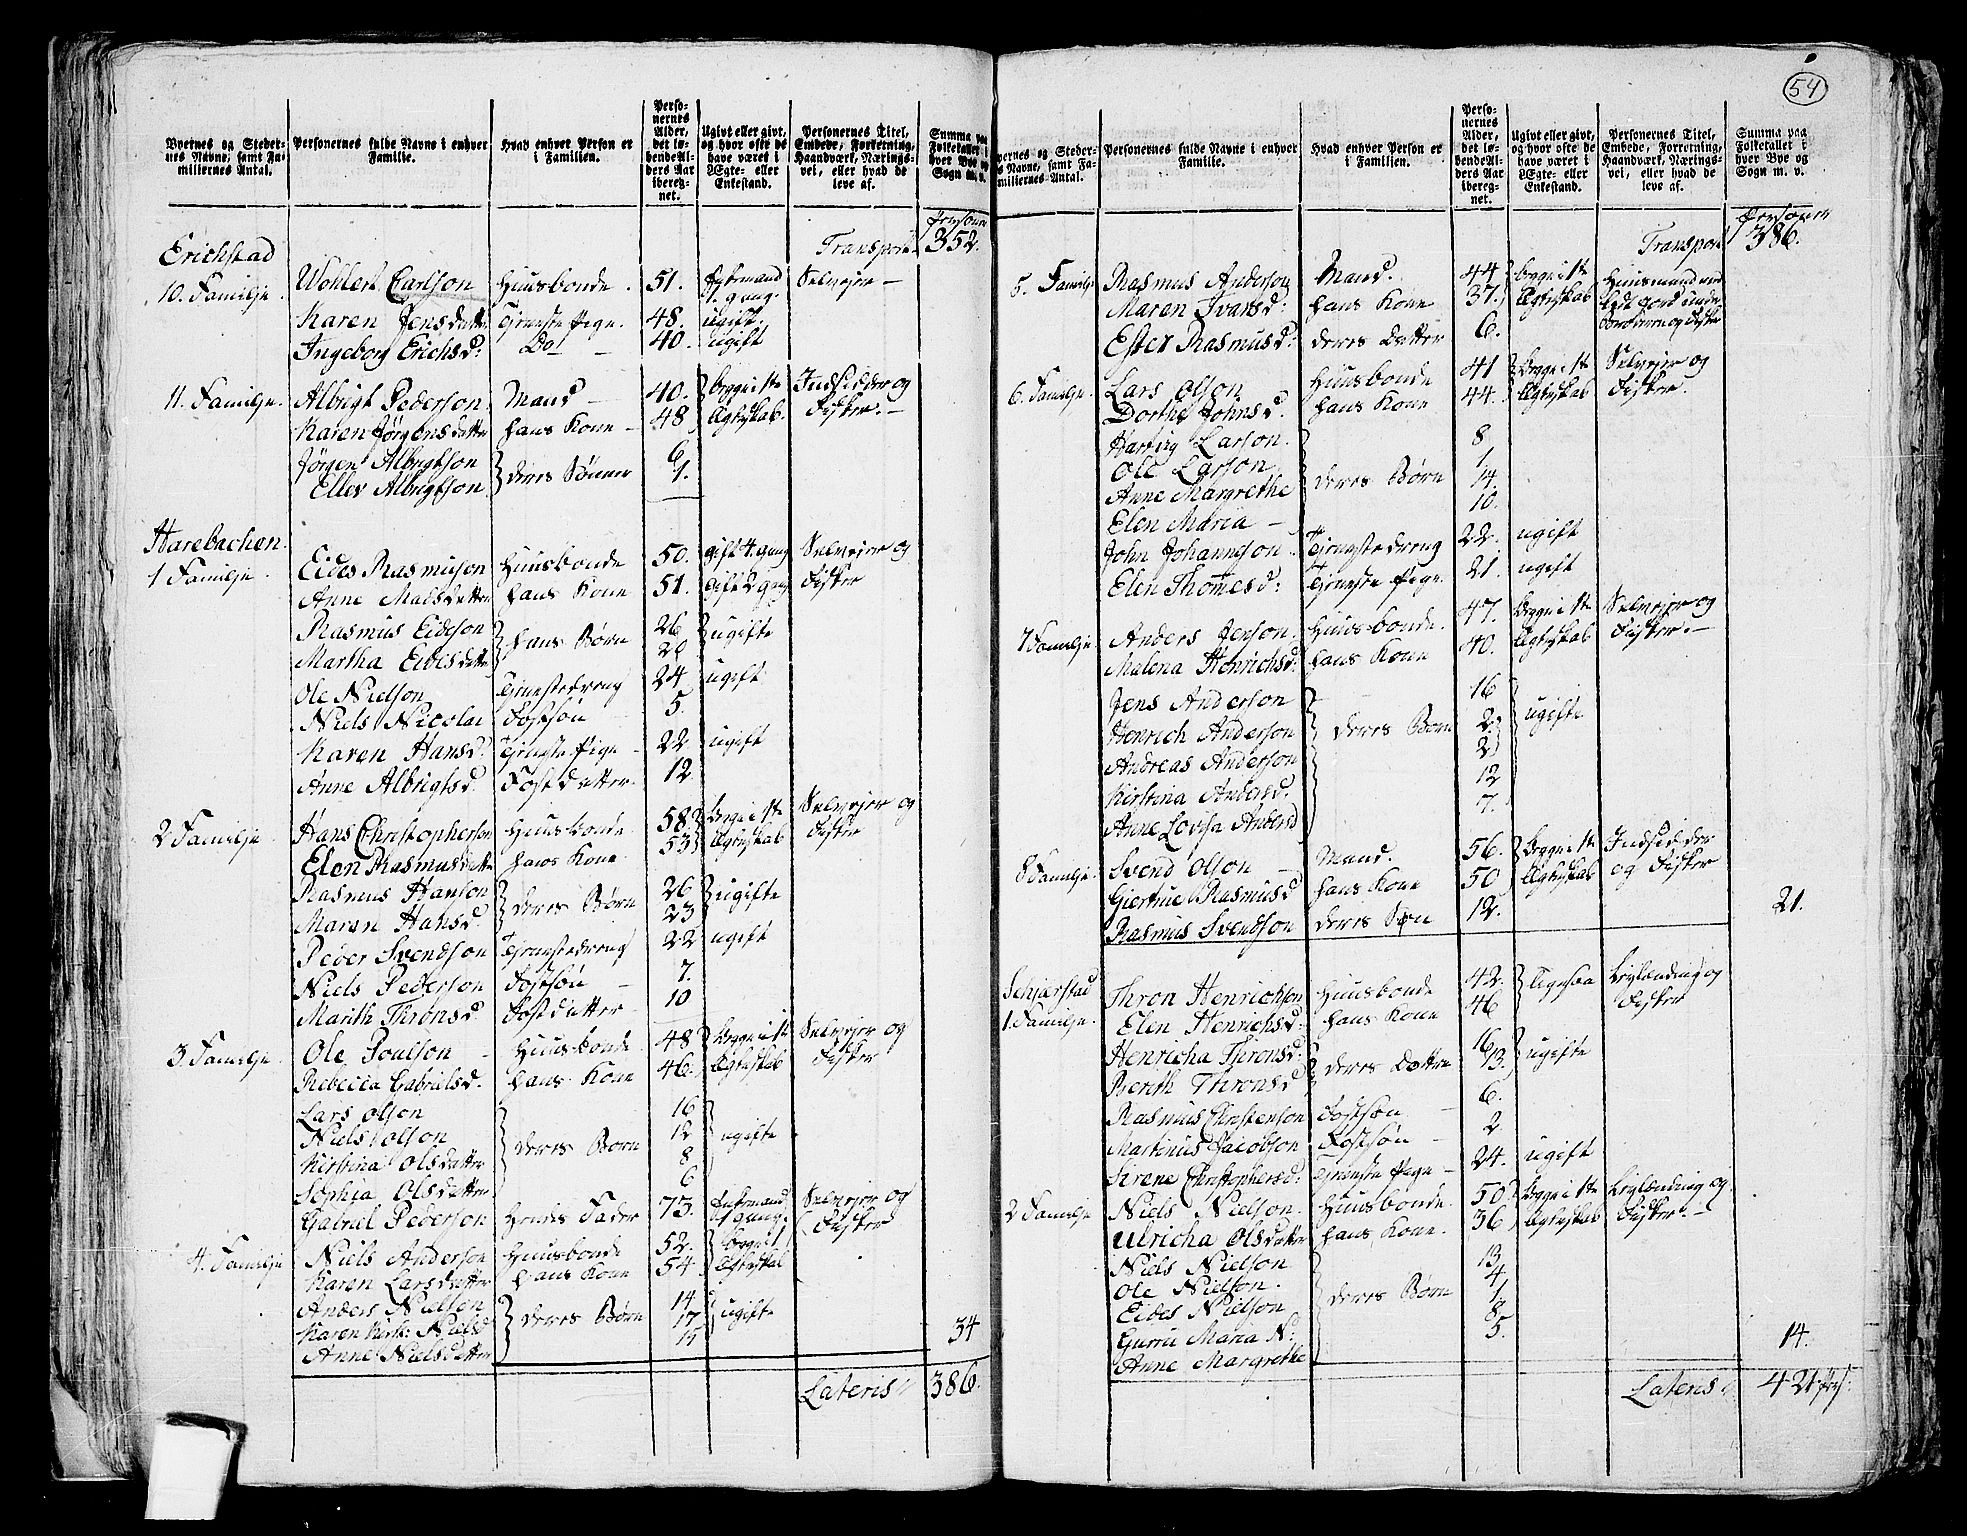 54
Byernes og Steder-
nes Navne, samt Fa-
miliernes Antal.
Personernes fulde Navne i enhver
Familie.
Hvad enhver Person er
i Familien.
Perso-
nernes
Alder,
det lø-
bende Al-
ders Aar
ibereg-
net.
Ugivt eller givt,
og hvor ofte de
have været i
Ægte- eller
Enkestand.
Personernes Titel,
Embede, Forretning,
Haandværk, Nærings-
vei, eller hvad de
leve af.
Summa paa
Folketallet i
hver Bye og
Sogn m. v.
Personer
Erichstad Transport 352.
10. Familje. Wohlert Carlson Huusbonde 51. Enkemand 1. gang. Selvejer
Karen Jensdatter Tjeneste Pige. 48. ugift.
Ingeborg Erichsd: Do 40. ugift
11. Familje. Albrigt Pederson Mand 40. begge i 1te Indsidder og
Karen Jørgensdatter hans Kone 48 Ægteskab. Fisker.
Jørgen Albrigtson deres Sønner 6
Eller Albrigtson 1.
Harebachen
1 Familje. Eides Rasmuson Huusbonde 50. gift 4. gang Selvejer og
Anne Madsdatter hans Kone 51. gift 2 gang Fisker
Rasmus Eideson hans Børn 26 ugifte
Martha Eidesdatter 20
Ole Nielson Tjenestedreng 24 ugift
Niels Nicolai Fostsøn 5.
Karen Hansd. Tjeneste Pige 22 ugift
Anne Albrigtsd. Fostdatter. 12
2 Familje. Hans Christopherson Huusbonde 58 begge i 1te Selvejer og
Elen Rasmusdatter hans Kone 53 Ægteskab Fisker
Rasmus Hanson deres Børn 26 ugifte
Maren Hansd. 23
Peder Svendson Tjenestedreng 22 ugift
Niels Pederson Fostsøn 7.
Marith Thronsd. Fostdatter 10
3 Familje. Ole Poulson Huusbonde 48 begge i 1te Selvejer og
Rebecca Gabrielsd. hans Kone 46. Ægteskab Fisker
Lars Olson 16
Niels Olson deres Børn 12 ugifte
Kirstina Olsdatter 8
Sophia Olsdatter 6
Gabriel Pederson Hendes Fader 73. Enkemand 1 gang. Selvejer og
4. Familje Niels Anderson Huusbonde 52. begge i 1 Fisker
Karen Larsdatter Hans Kone 54 Ægteskab
Anders Nielson deres Børn 14 ugifte
Karen Kirst: Nielsd 17
Anne Nielsdatter 11 34
Lateris 386.
Byernes og Steder-
nes Navne, samt Fa-
miliernes Antal.
Personernes fulde Navne i enhver
Familie.
Hvad enhver Person er
i Familien.
Perso-
nernes
Alder,
det lø-
bende Al-
ders Aar
ibereg-
net.
Ugivt eller givt,
og hvor ofte de
have været i
Ægte- eller
Enkestand.
Personernes Titel,
Embede, Forretning,
Haandværk, Nærings-
vei, eller hvad de
leve af.
Summa paa
Folketallet i
hver Bye og
Sogn m. v.
Personer
Transport 386.
5. Familje Rasmus Anderson Mand. 44 begge i 1te Huusmand med
Maren Ivarsd: hans Kone 37. Ægteskab lidt Jord under
Ester Rasmusd: deres Datter 6. og Fisker
6. Familje. Lars Olson Huusbonde 41 begge i 1te Selvejer og
Dorthe Johnsd. hans Kone 44. Ægteskab Fisker.
Hartvig Larson 8
Ole Larson deres Børn 1
Anne Margrethe 14.
Elen Maria 10.
John Johanneson Tjenestedreng 22. ugift
Elen Thomesd: Tjeneste Pige 21. ugift
7 Familje. Anders Jenson Huusbonde. 47. begge i 1te Selvejer og
Malena Henrichsd: hans Kone 40. Ægteskab Fisker.
Jens Anderson 16
Henrich Anderson deres Børn 2. ugifte
Andreas Anderson 2
Kirstina Andersd. 12
Anne Lovisa Andersd 7.
8 Familje. Svend Olson Mand. 56. begge i 1te Indsidder
Giertrue Rasmusd hans Kone 50 Ægteskab og Fisker
Rasmus Svendson deres Søn 12. 21.
Schjærstad Thron Henrichson Huusbonde 42. ligesaa Leylænding og
1. Familje. Elen Henrichsd: hans Kone 46 Fisker
Henricha Thronsd: deres Døttre 16 ugifte
Bereth Thronsd 13.
Rasmus Christenson Fostsøn 6.
Martinus Jacobson Fostsøn 2
Sirene Christophersd: Tjeneste Pige 24. ugift
2 Familje Niels Nielson. Huusbonde 50. begge i 1te Leylænding og
Ulricha Olsdatter hans Kone. 36 Ægteskab Fisker.
Niels Nielson 13
Ole Nielson. deres Børn 4
Eides Nielson 1
Gurru Maria N: 8
Anne Margrethe 5. 14.
Lateris 421 pers: